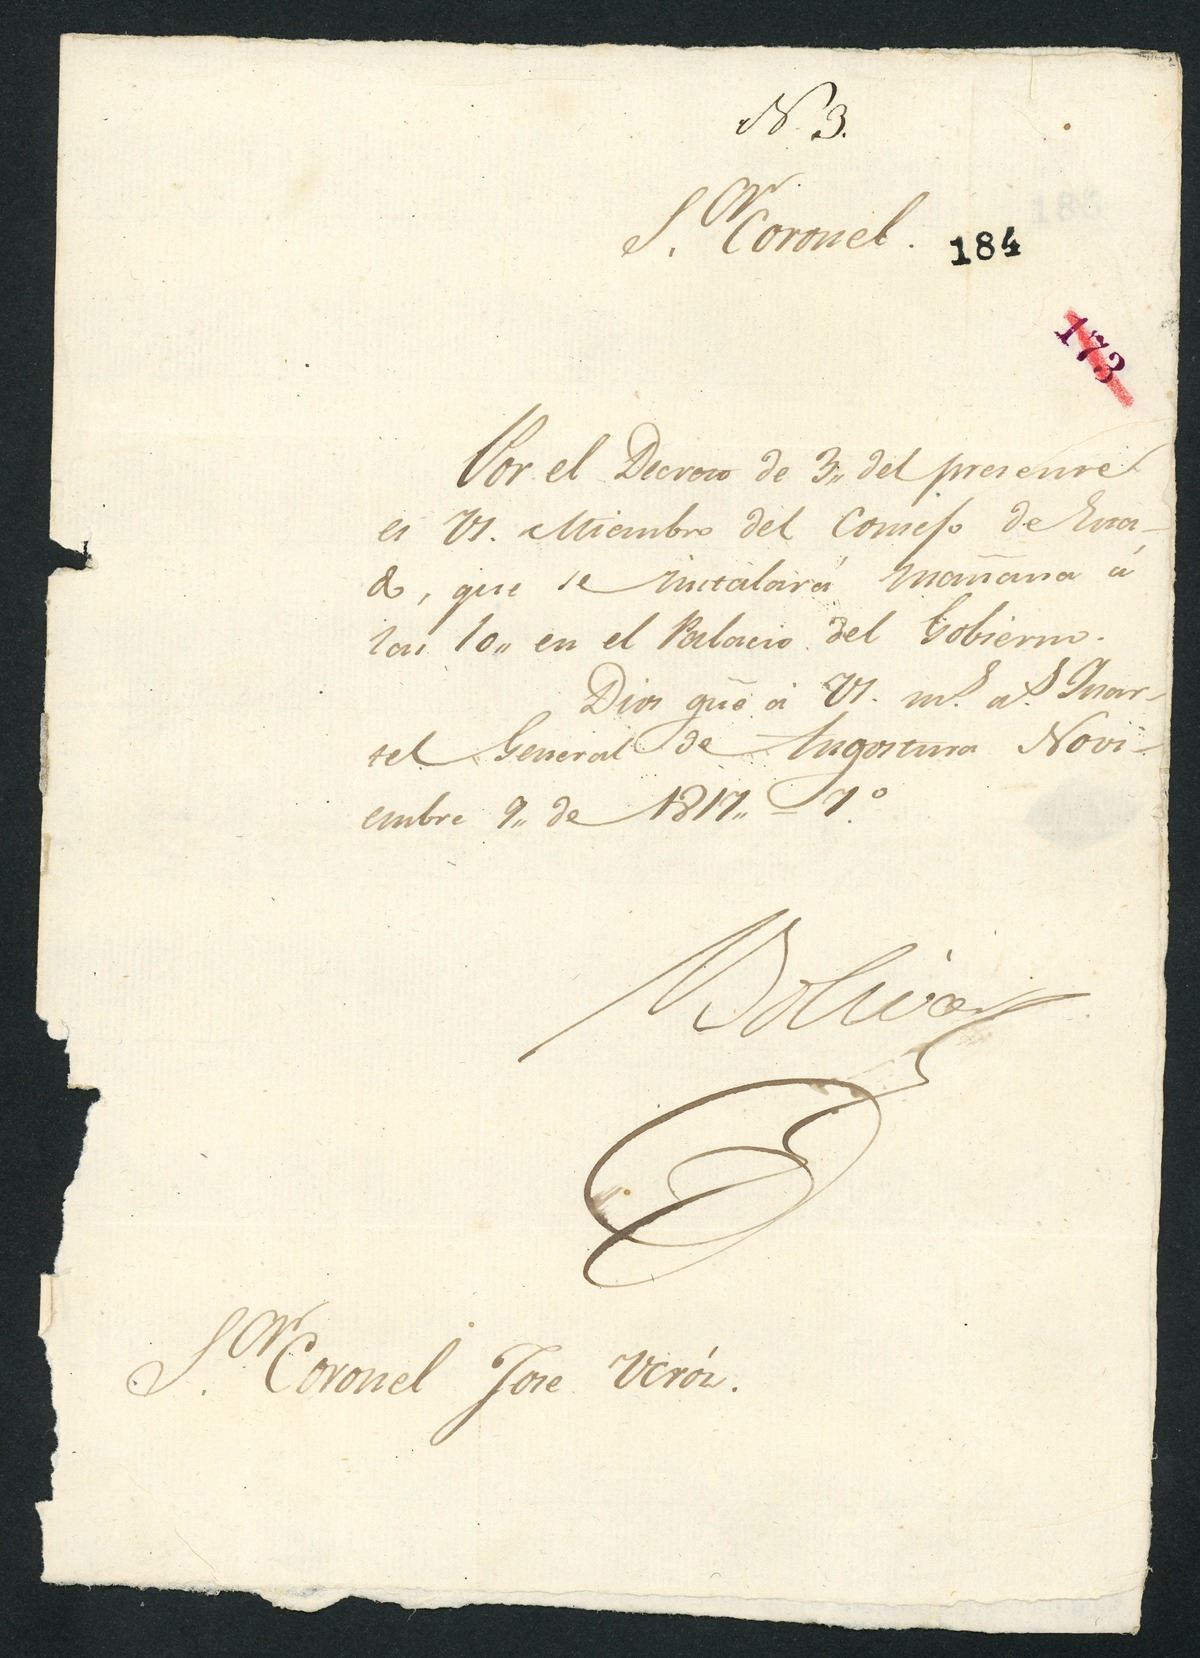 N. 3.
S.or Coronel.
184
173
Por el Decreto de 3,, del presente
es VS. Miembro del Consejo de Esta-
do, que se instalará mañana á
las 10,, en el Palacio del Gobierno.
Dios gūe á VS. m.s a.s Quar-
tel General de Angostura Novi-
embre 9,, de 1817,, = 7.º
Bolivar
S.or Coronel Jose Ucrós.